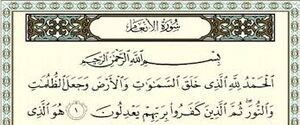 سُورَةُ الأَنْعَامِ
بِسْمِ اللَّهِ الرَّحْمَٰنِ الرَّحِيمِ
الْحَمْدُ لِلَّهِ الَّذِي خَلَقَ السَّمَٰوَٰتِ وَالْأَرْضَ وَجَعَلَ الظُّلُمَٰتِ
وَالنُّورَ ثُمَّ الَّذِينَ كَفَرُوا بِرَبِّهِمْ يَعْدِلُونَ ﴿١﴾ هُوَ الَّذِي